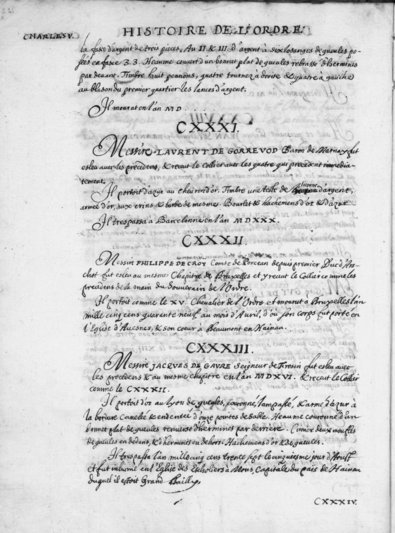 CHARLES V. HISTOIRE DE L'ORDRE.
la face d'argent de trois pieces, Au II & III d'argent à six losanges de gueules po-
sées en face 3.3. Heaume couvert d'un bonnet plat de gueules rebrassé d'hermines
par devant. Timbre huit pennons, quatre tournez à droite & quatre à gauche
au blason du premier quartier les lances d'argent.
Il mourut en l'an M D . . . . .
CXXXI.
Messire LAURENT DE GORREVOD Baron de
esleu avec les précedens, & receut le Collier avec les quatre
tement.
Il portoit d'azur au chevron d'or. Timbre une teste de licorne d'argent,
armée d'or, aux crins & barbe de mesmes. Bourlet & hachemens d'or & d'azur.
Il trespassa à Barcelonne en l'an MDXXX.
CXXXII.
Messire PHILIPPE DE CROY Comte de Porcean depuis premier Duc d'Ar-
schot fut esleu au mesme Chapitre de Bruxelles et y receut le Collier comme les
precedens de la main du Souverain de l'Ordre.
Il portoit comme le XV. Chevalier de l'Ordre et mourut a Bruxelles l'an
mille cinq cens quarente neuf au mois d'Avril, d'où son corps fut porté en
l'Eglise d'Avesnes, & son cœur à Beaumont en Hainau.
CXXXIII.
Messire JACQUES DE GAVRE Seigneur de Fresin fut esleu avec
les precedens & au mesme chapitre en l'an MDXVI. & receut le Collier
comme le CXXXII.
Il portoit d'or au lyon de gueules, couronné, lampassé, & armé d'azur à
la bordure Canelée & endentée d'onze pointes de sable. Heaume couronné d'un
bonnet plat de gueules rebrassé d'hermines par derriere. Cimier deux moufles
de gueules en dedans, & d'hermines en dehors. Hachemens d'or & de gueules.
Il trespassa l'an mille cinq cens trente sept le cinquiesme jour d'Aoust
et fut inhumé en l'Eglise des Escholiers à Mons, Capitale du païs de Hainau
duquel il estoit Grand Bailly.
CXXXIV.